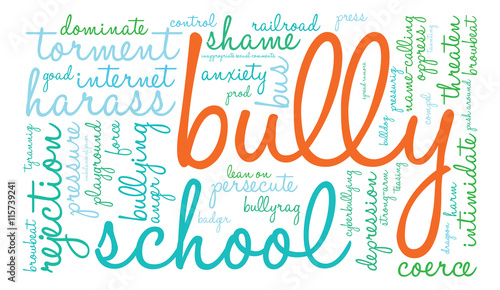 dominate
control
railroad
press
torment
shame
inappropriate sexual comments
spread rumors
taunting
goad
internet
anxiety
bus
harass
prod
bully
name-calling
oppress
threaten
browbeat
bulldog
pressuring
compel
push around
tyranny
pressure
playground
force
bullying
angry
lean on
persecute
bullyrag
badger
rejection
browbeat
school
cyberbullying
strong-arm
teasing
depression
dragoon
harm
intimidate
coerce
115739241
Adobe Stock